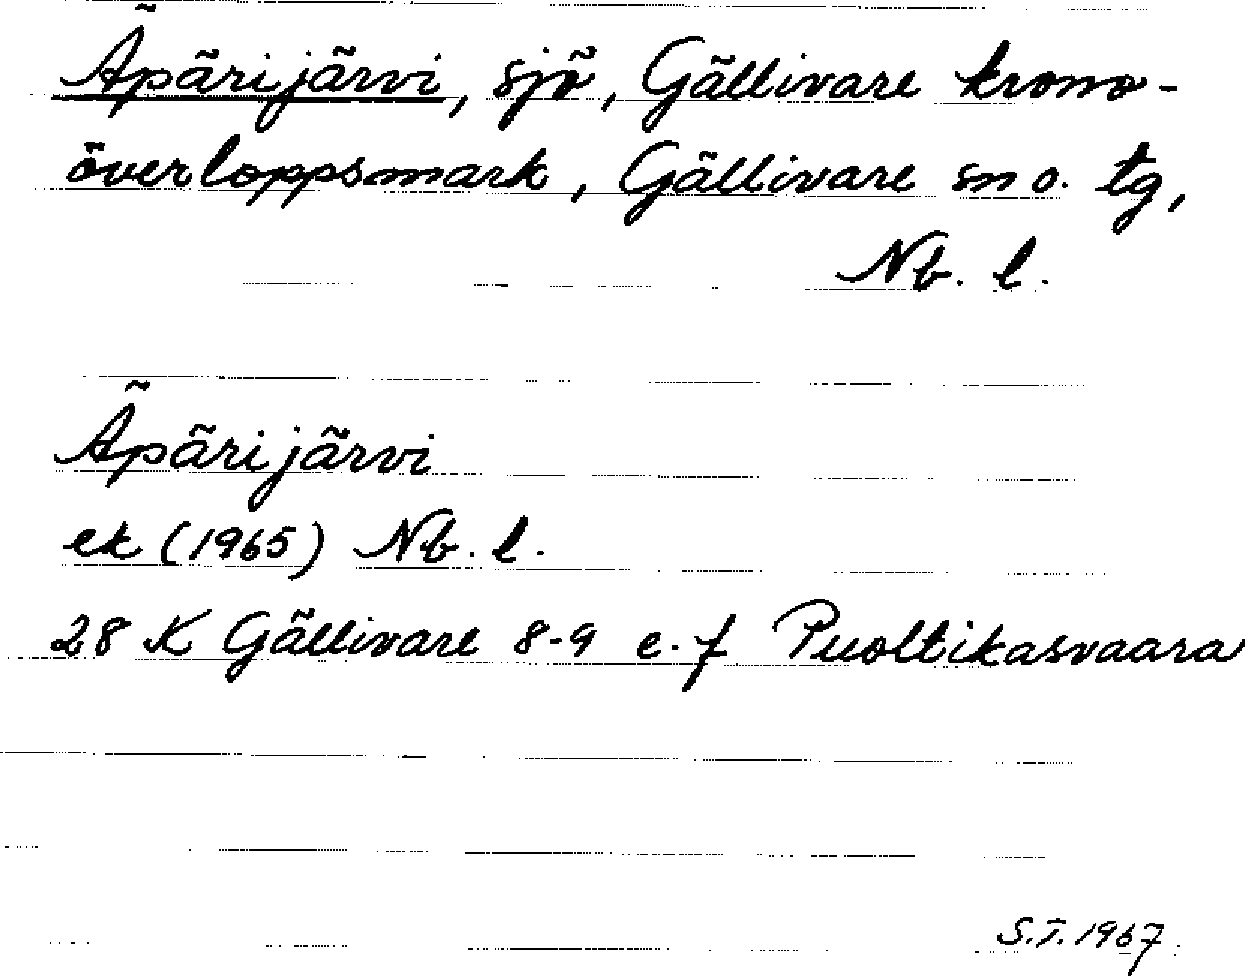 Äpärijärvi, sjö, Gällivare krono-
överloppsmark, Gällivare sn o. tg,
Nb. l.
Äpärijärvi
ek (1965) Nb. l.
28 K Gällivare 8-9 e-f Puoltikasvaara
S.T. 1967.